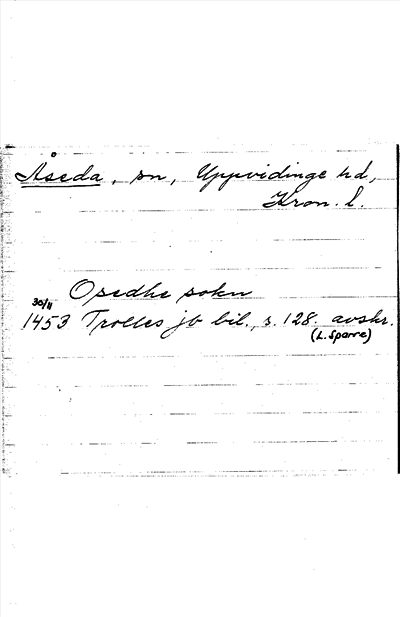 Åseda, sn, Uppvidinge hd,
Kron. l.
Osedhe sokn
30/11
1453 Trolles jb bil., s. 128. avskr.
(L. Sparre)